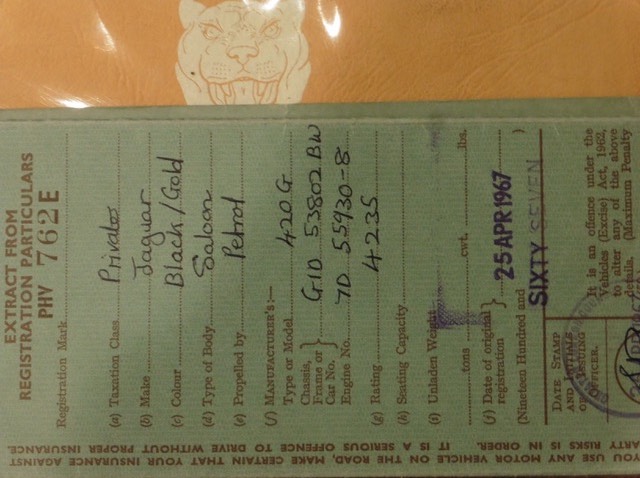 EXTRACT FROM
REGISTRATION PARTICULARS
PHV 762E
Registration Mark
(a) Taxation Class Private
(b) Make Jaguar
(c) Colour Black/Gold
(d) Type of Body Saloon
(e) Propelled by Petrol
(f) MANUFACTURER'S:—
Type or Model 420 G
Chassis, Frame or Car No. } G1D 53802 BW
Engine No. 7D 55930-8
(g) Rating 4235
(h) Seating Capacity
(i) Unladen Weight
tons cwt. lbs.
(j) Date of original registration } 25 APR 1967
(Nineteen Hundred and SIXTY SEVEN )
DATE STAMP
AND INITIALS
OF ISSUING
OFFICER.
It is an offence under the
Vehicles (Excise) Act, 1962,
to alter any of the above
details. (Maximum Penalty
YOU USE ANY MOTOR VEHICLE ON THE ROAD, MAKE CERTAIN THAT YOUR INSURANCE AGAINST
PARTY RISKS IS IN ORDER. IT IS A SERIOUS OFFENCE TO DRIVE WITHOUT PROPER INSURANCE.